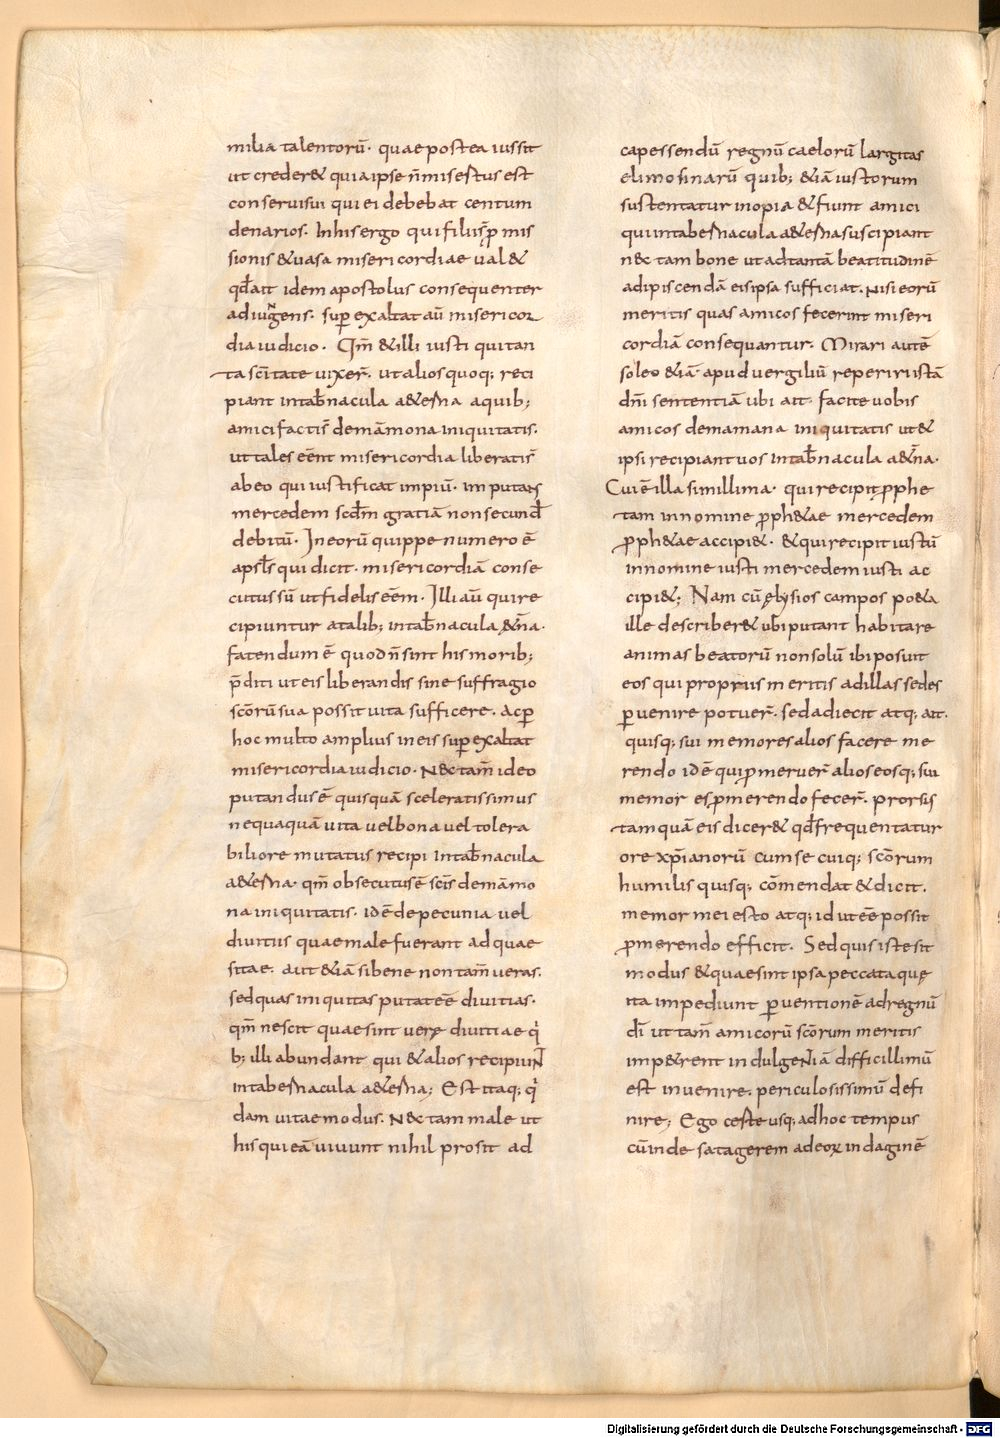 milia talentorū· quae postea iussit
ut crederet quia ipse n̄ misestus est
conseruisui qui ei debebat centum
denarios. In his ergo qui filius p̱ mis
sionis & uasa misericordiae ual&
qd̄ ait idem apostolus consequenter
adiungens· sup exaltat aū misericor
dia iudicio· Qm̄ & illi iusti qui tan
ta scītate uixer̄· ut alios quoq; reci
piant intab̄nacula a&erna a quib;
amici factis demāmona iniquitatis·
ut tales eēnt misericordia liberatis
ab eo qui iustificat impiū· imputans
mercedem scdm̄ gratiā non secund̄
debitū· In eorū quippe numero ē
apsl̄s qui dicit· misericordiā conse
cutus sū ut fidelis eēm· Illi aū qui re
cipiuntur a talib; intab̄nacula &n̄a·
fatendum ē quod n̄ sint his morib;
p̄diti ut eis liberandis sine suffragio
scōrū sua possit uita sufficere· ac p̱
hoc multo amplius in eis sup exaltat
misericordia iudicio· Nec tam̄ ideo
putandus ē quisquā sceleratissimus
nequaquā uita uel bona uel tolera
biliore mutatus recipi intab̄nacula
a&erna· qm̄ obsecutus ē scīs demāmo
na iniquitatis· id ē de pecunia uel
diuitiis quae male fuerant adquae
sitae· aut &iā si bene non tam̄ ueras·
sed quas iniquitas putat eē diuitias·
qm̄ nescit quae sint uerę diuitiae qi
b; illi abundant qui & alios recipiunt
intabernacula a&erna; Est itaq; qi
dam uitae modus· nec tam male ut
his qui eā uiuunt nihil prosit ad
capessendū regnū caelorū largitas
elimosinarū quib; &iā iustorum
sustentatur inopia & fiunt amici
qui intabernacula a&erna suscipiant
nec tam bone ut ad tantā beatitudinē
adipiscendā eis ipsa sufficiat· nisi eorū
meritis quas amicos fecerint miseri
cordiā consequantur· Mirari autē
soleo &iā apud uergiliū reperiri istā
dn̄i sententiā ubi ait· facite uobis
amicos demamana iniquitatis ut &
ipsi recipiant uos intab̄nacula a&n̄a·
Cui ē illa simillima· qui recipit p̱phe
tam in nomine p̱ph&ae mercedem
p̱ph&ae accipi&· & qui recipit iustū
in nomine iusti mercedem iusti ac
cipi&; Nam cū ęlysios campos po&a
ille describer& ubi putant habitare
animas beatorū non solū ibi posuit
eos qui propriis meritis ad illas sedes
p̱uenire potuer̄· sed adiecit atq; ait·
quisq; sui memores alios facere me
rendo id ē qui p̱meruer̄ alios eosq; sui
memores p̱merendo fecer̄· prorsis
tamquā eis dicer& qd̄ frequentatur
ore xp̄ianorū cum se cuiq; scōrum
humilis quisq; cōmendat & dicit·
memor mei esto atq; id ut eē possit
p̱merendo efficit· Sed quis iste sit
modus & quae sint ipsa peccata quę
ita impediunt p̱uentionē ad regnū
dī ut tam̄ amicorū scōrum meritis
imp&rent indulgentiā difficillimū
est inuenire· periculosissimū defi
nire; Ego certe usq; ad hoc tempus
cū inde satagerem ad eor̄ indaginē
Digitalisierung gefördert durch die Deutsche Forschungsgemeinschaft - DFG